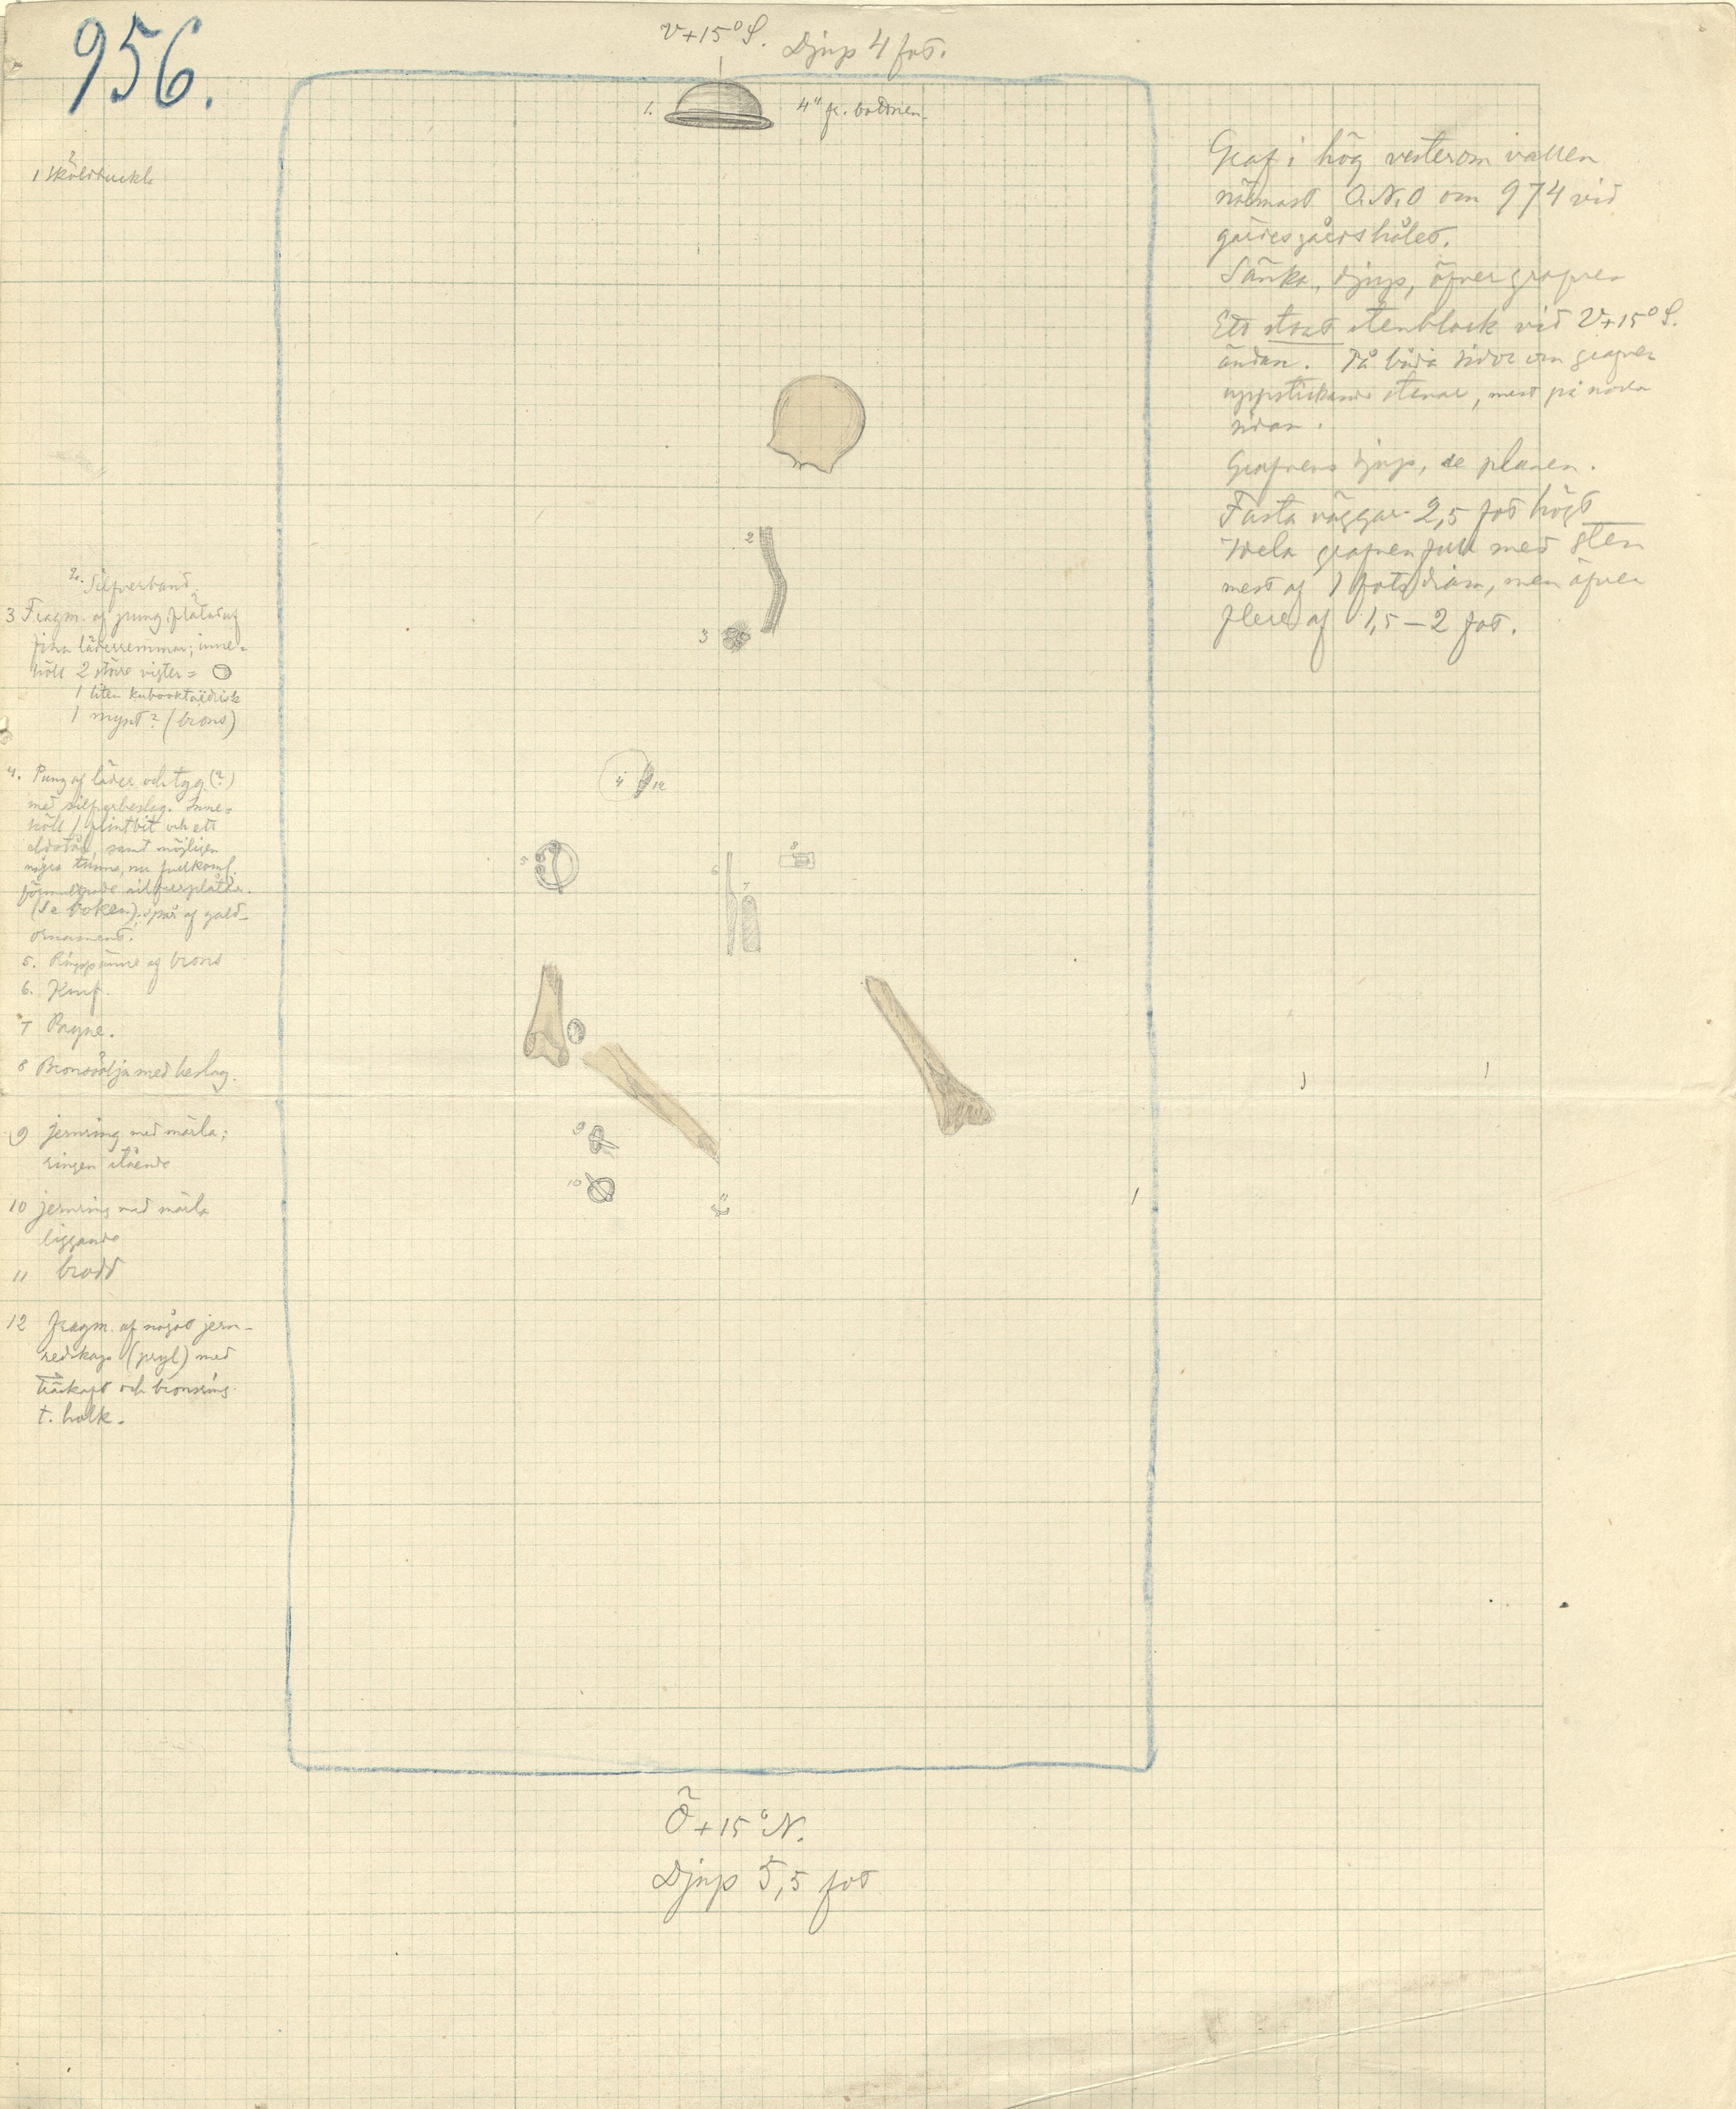 956.
V+15° S. Djup 4 fot.
1. 4" fr. bottnen.
1 Sköldbuckla
2. Silfverband
3 Fragm. af pung, flätad af
fina läderremmar; inne-
höll 2 större vigter =
1 liten kubooktaëdrisk
1 mynt? (brons)
4. Pung af läder och tyg (?)
med silfverbeslag. Inne-
höll 1 flintbit och ett
eldstål, samt möjligen
några tunna, nu fullkoml.
förmultnade silfverplåtar.
(Se boken); spår af guld-
ornament.
5. Ringspänne af brons
6. Knif.
7 Bryne.
8 Bronssölja med beslag.
9 jernring med märla;
ringen stående
10 jernring med märla
liggande
11 brodd
12 fragm. af något jern-
redskap (pryl) med
träskaft och bronsring
t. holk.
Graf i hög vesterom vallen
närmast O.N.O om 974 vid
gärdesgårdshålet.
Sänka, djup, öfver grafven
Ett stort stenblock vid V+15° S.
ändan. På båda sidor om grafven
uppstickande stenar, mest på norra
sidan.
Grafvens djup, se planen.
Fasta väggar 2,5 fot högt
Hela grafven full med sten
mest af 1 fots diam, men äfven
flere af 1,5 – 2 fot.
2
3
4 12
5
6
7
8
9
10
11
Ö+15° N.
Djup 5,5 fot